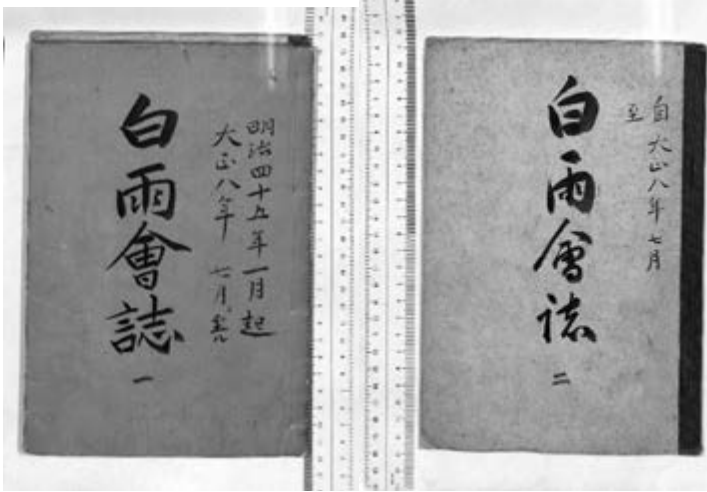 明治四十五年一月起
大正八年 七月
白雨會誌
一
自 大正八年 七月
至
白雨會誌
二